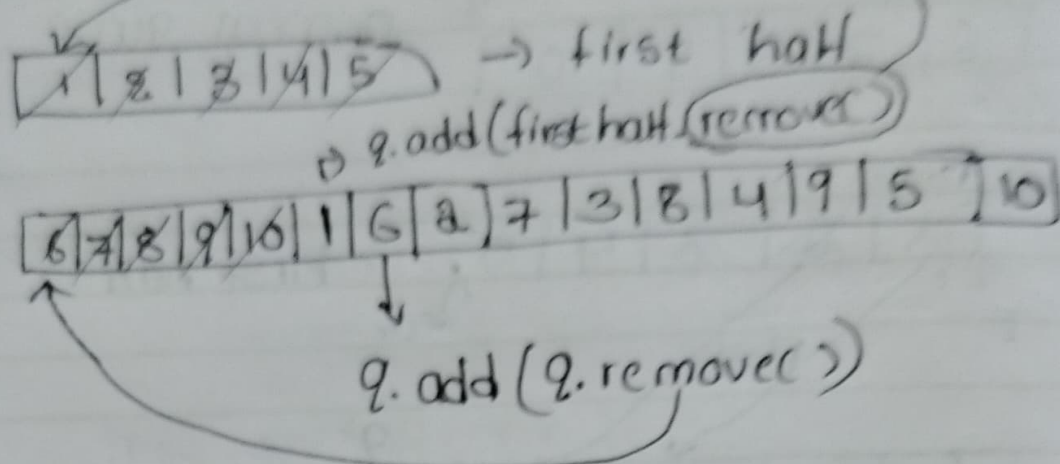 1 | 2 | 3 | 4 | 5 → first half
q.add(first half.remove())
6 | 7 | 8 | 9 | 10 | 1 | 6 | 2 | 7 | 3 | 8 | 4 | 9 | 5 | 10
q.add(q.remove())